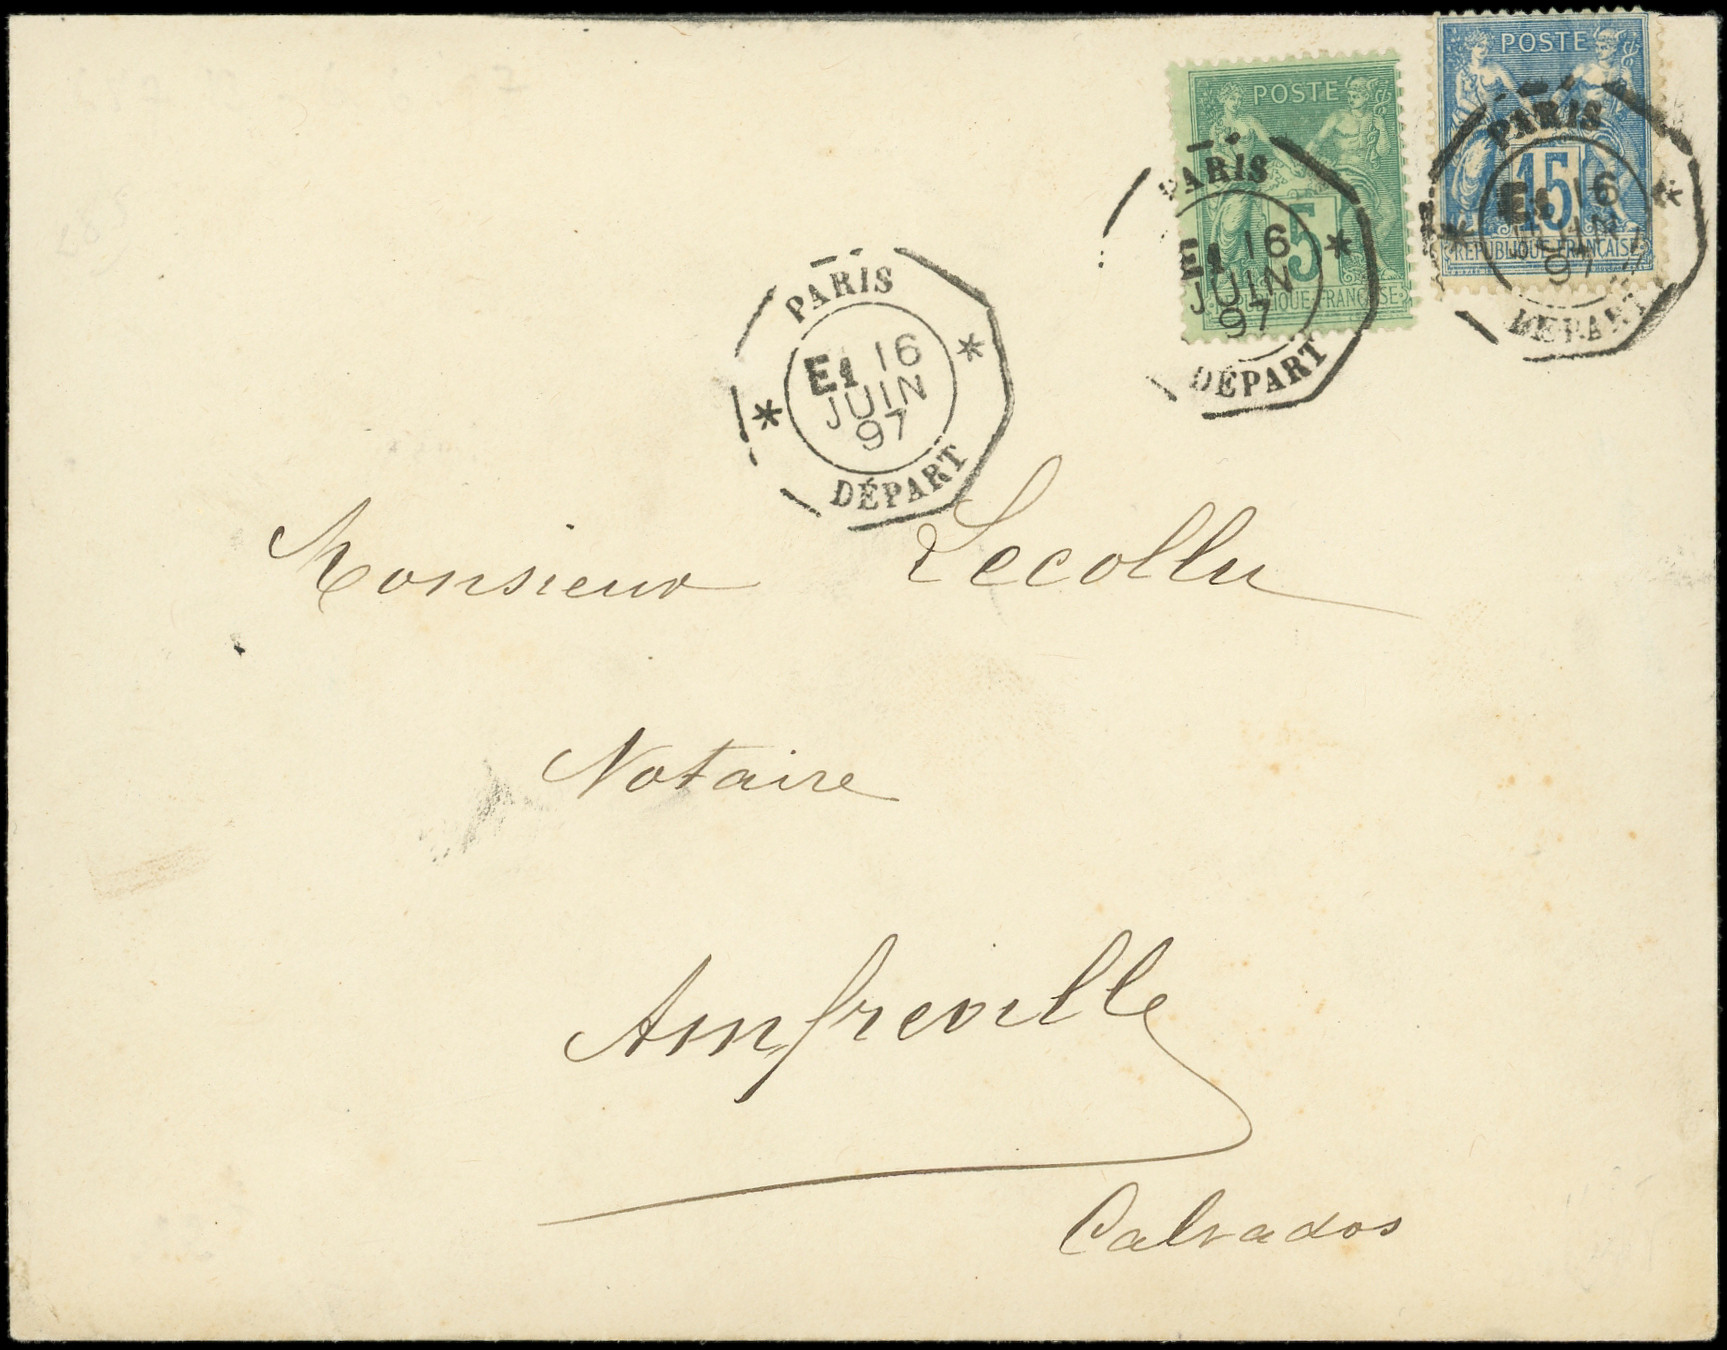 POSTE
15
REPUBLIQUE FRANÇAISE
POSTE
5
REPUBLIQUE FRANÇAISE
PARIS
E1 16
JUIN
97
DÉPART
PARIS
E1 16
JUIN
97
DÉPART
PARIS
E1 16
JUIN
97
DÉPART
Monsieur Lecollu
Notaire
Amfreville
Calvados